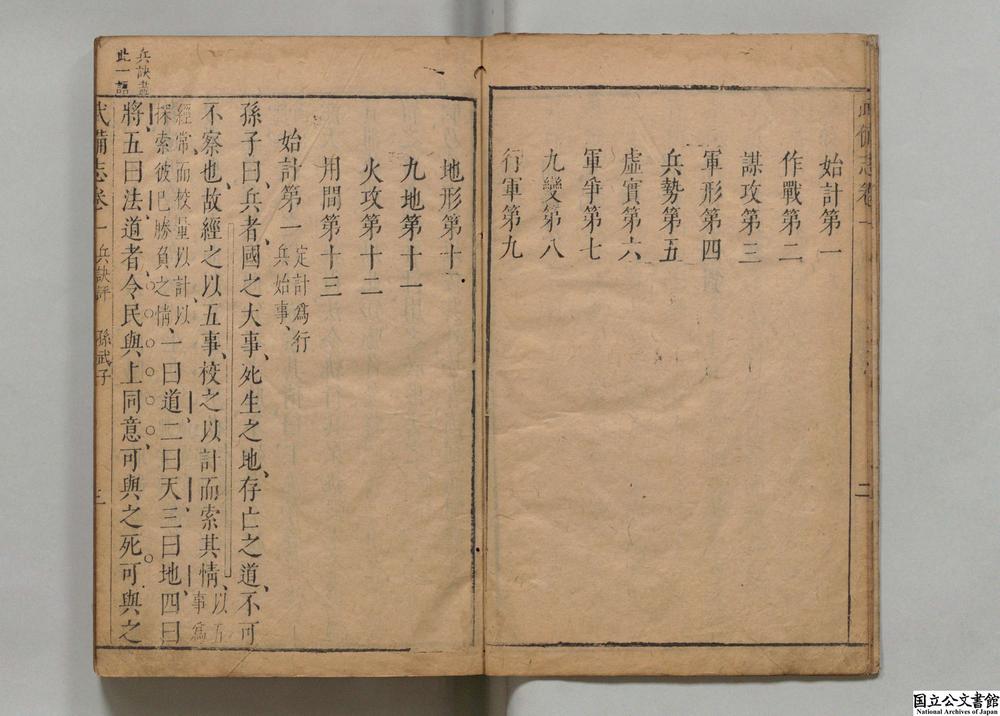 武備志卷一
二
始計第一
作戰第二
謀攻第三
軍形第四
兵勢第五
虛實第六
軍爭第七
九變第八
行軍第九
地形第十
九地第十一
火攻第十二
用間第十三
始計第一
定計爲行
兵始事
孫子曰兵者國之大事死生之地存亡之道不可
不察也故經之以五事校之以計而索其情
以五
事爲
經常而校量以計以
探索彼巳勝負之情
一曰道二曰天三曰地四曰
將五曰法道者令民與上同意可與之死可與之
兵訣盡
此一語
武備志卷一 兵訣評 孫武子
三
国立公文書館
National Archives of Japan